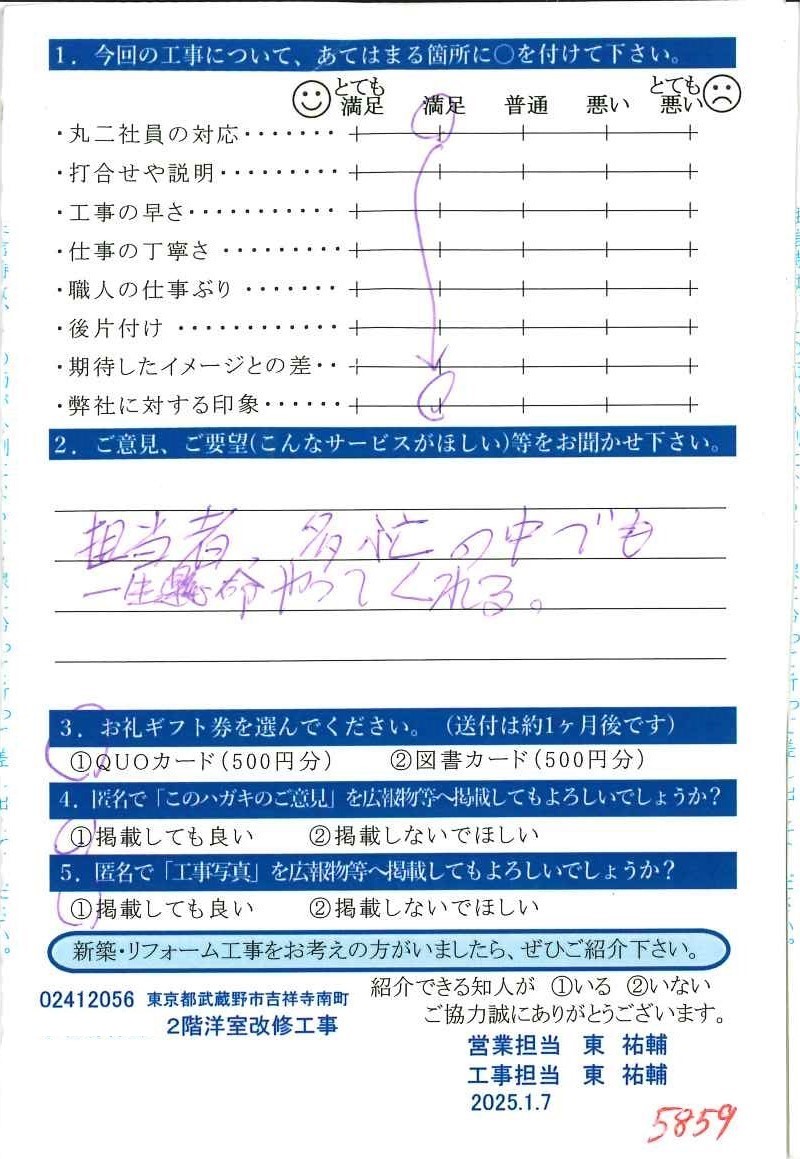 1. 今回の工事について、あてはまる箇所に○を付けて下さい。
とても満足 満足 普通 悪い とても悪い
・丸二社員の対応・・・・・・・
・打合せや説明・・・・・・・・・
・工事の早さ・・・・・・・・・・・
・仕事の丁寧さ・・・・・・・・・
・職人の仕事ぶり・・・・・・・
・後片付け・・・・・・・・・・・・
・期待したイメージとの差・・
・弊社に対する印象・・・・・・
2. ご意見、ご要望(こんなサービスがほしい)等をお聞かせ下さい。
担当者、多忙の中でも
一生懸命やってくれる。
3. お礼ギフト券を選んでください。(送付は約1ヶ月後です)
①QUOカード(500円分) ②図書カード(500円分)
4. 匿名で「このハガキのご意見」を広報物等へ掲載してもよろしいでしょうか?
①掲載しても良い ②掲載しないでほしい
5. 匿名で「工事写真」を広報物等へ掲載してもよろしいでしょうか?
①掲載しても良い ②掲載しないでほしい
新築・リフォーム工事をお考えの方がいましたら、ぜひご紹介下さい。
紹介できる知人が ①いる ②いない
ご協力誠にありがとうございます。
02412056 東京都武蔵野市吉祥寺南町
2階洋室改修工事
営業担当 東 祐輔
工事担当 東 祐輔
2025.1.7
5859